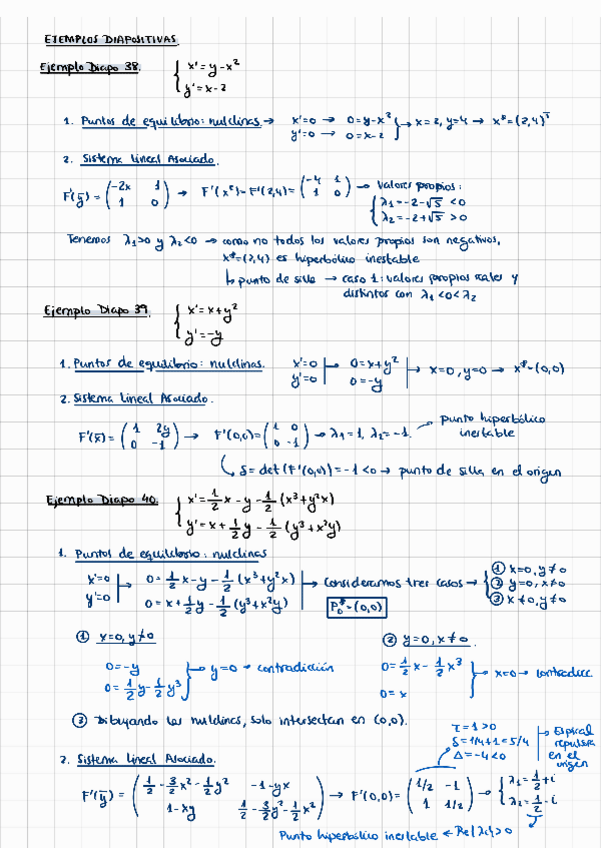 EJEMPLOS DIAPOSITIVAS.
Ejemplo Diapo 38. { x'=y-x²
y'=x-2
1. Puntos de equilibrio: nulclinas → x'=0 → 0=y-x² } → x=2, y=4 → x*=(2,4)
y'=0 → 0=x-2
2. Sistema Lineal Asociado.
F'(y̅) = (-2x 1 / 1 0) → F'(x*)=F'(2,4)= (-4 1 / 1 0) → valores propios:
{ λ1=-2-√5 <0
λ2=-2+√5 >0
Tenemos λ1>0 y λ2<0 → como no todos los valores propios son negativos,
x*=(2,4) es hiperbólico inestable
↳ punto de silla → caso 1: valores propios reales y
distintos con λ1<0<λ2
Ejemplo Diapo 39. { x'=x+y²
y'=-y
1. Puntos de equilibrio: nulclinas. x'=0 → 0=x+y² → x=0, y=0 → x*=(0,0)
y'=0 0=-y
2. Sistema Lineal Asociado.
F'(x̅) = (1 2y / 0 -1) → F'(0,0)= (1 0 / 0 -1) → λ1=1, λ2=-1. → punto hiperbólico
inestable
↳ δ=det(F'(0,0))=-1<0 → punto de silla en el origen
Ejemplo Diapo 40. { x'=1/2x-y-1/2(x³+y²x)
y'=x+1/2y-1/2(y³+x²y)
1. Puntos de equilibrio: nulclinas
x'=0 → 0=1/2x-y-1/2(x³+y²x) → Consideramos tres casos → { ① x=0, y≠0
y'=0 0=x+1/2y-1/2(y³+x²y) P₀*=(0,0) ② y=0, x≠0
③ x≠0, y≠0
① x=0, y≠0 ② y=0, x≠0.
0=-y } → y=0 → contradicción 0=1/2x-1/2x³ } → x=0 → contradicc
0=1/2y-1/2y³ 0=x
③ Dibujando las nulclinas, solo intersectan en (0,0).
τ=1>0
δ=1/4+1=5/4
Δ=-4<0
Espiral
repulsora
en el
origen
2. Sistema Lineal Asociado.
F'(y̅) = (1/2-3/2x²-1/2y² -1-yx / 1-xy 1/2-3/2y²-1/2x²) → F'(0,0)= (1/2 -1 / 1 1/2) → { λ1=1/2+i
λ2=1/2-i
Punto hiperbólico inestable ← Re(λi)>0